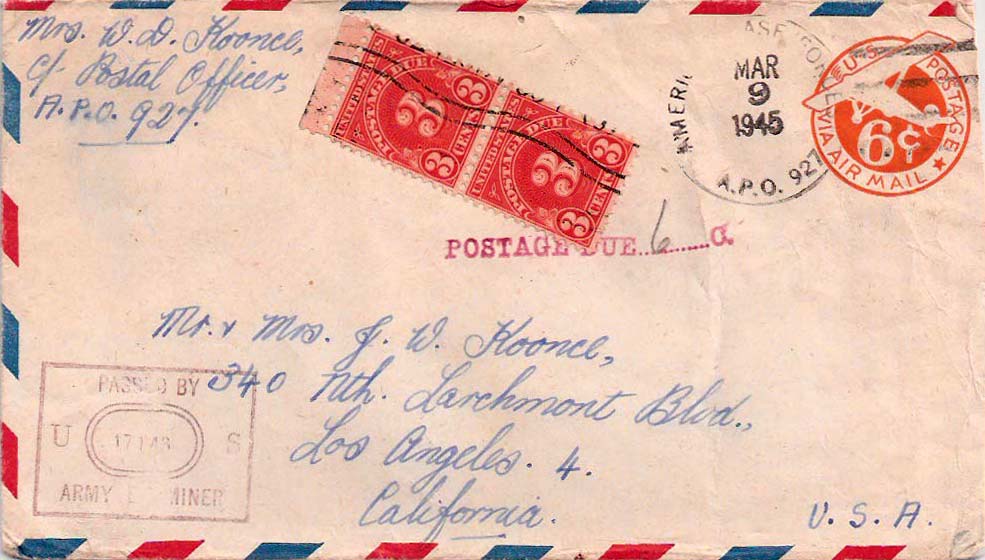 Mrs. W. D. Koonce,
c/- Postal Officer,
A.P.O. 927.
UNITED STATES
POSTAGE DUE
3
3
3
CENTS
UNITED STATES
POSTAGE DUE
3
3
3
CENTS
AMERICAN BASE
MAR
9
1945
A.P.O. 927
U.S. POSTAGE
6¢
VIA AIR MAIL
POSTAGE DUE 6 ¢
Mr. & Mrs. J. W. Koonce,
340 Nth. Larchmont Blvd.,
Los Angeles. 4.
California.
U. S. A.
PASSED BY
U S
ARMY EXAMINER